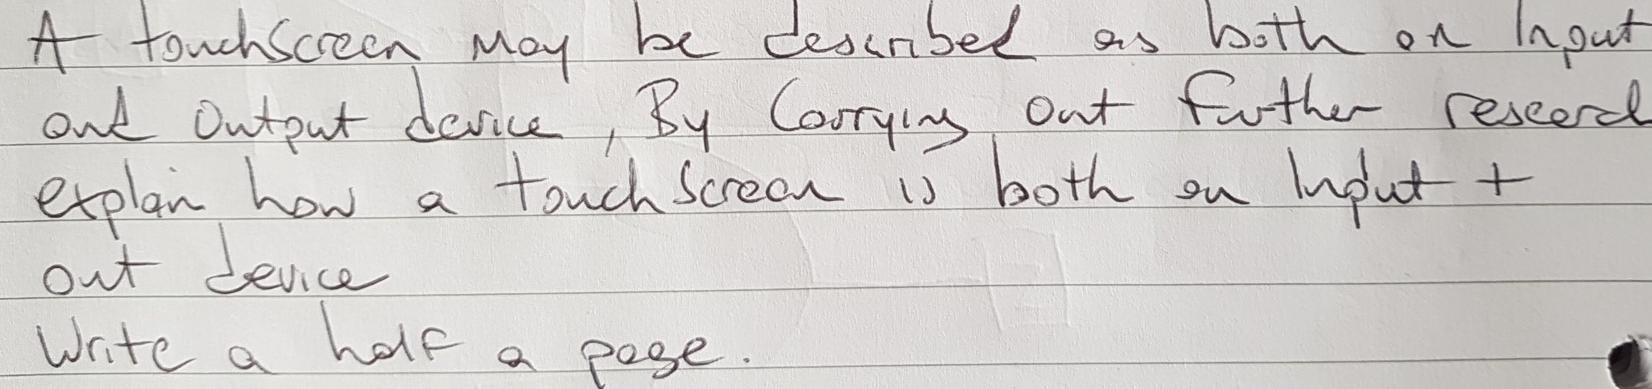 A touchScreen May be described as both an Input
and Output device, By Carrying out further research
explain how a touch Screen is both an Input +
out device
Write a half a page.